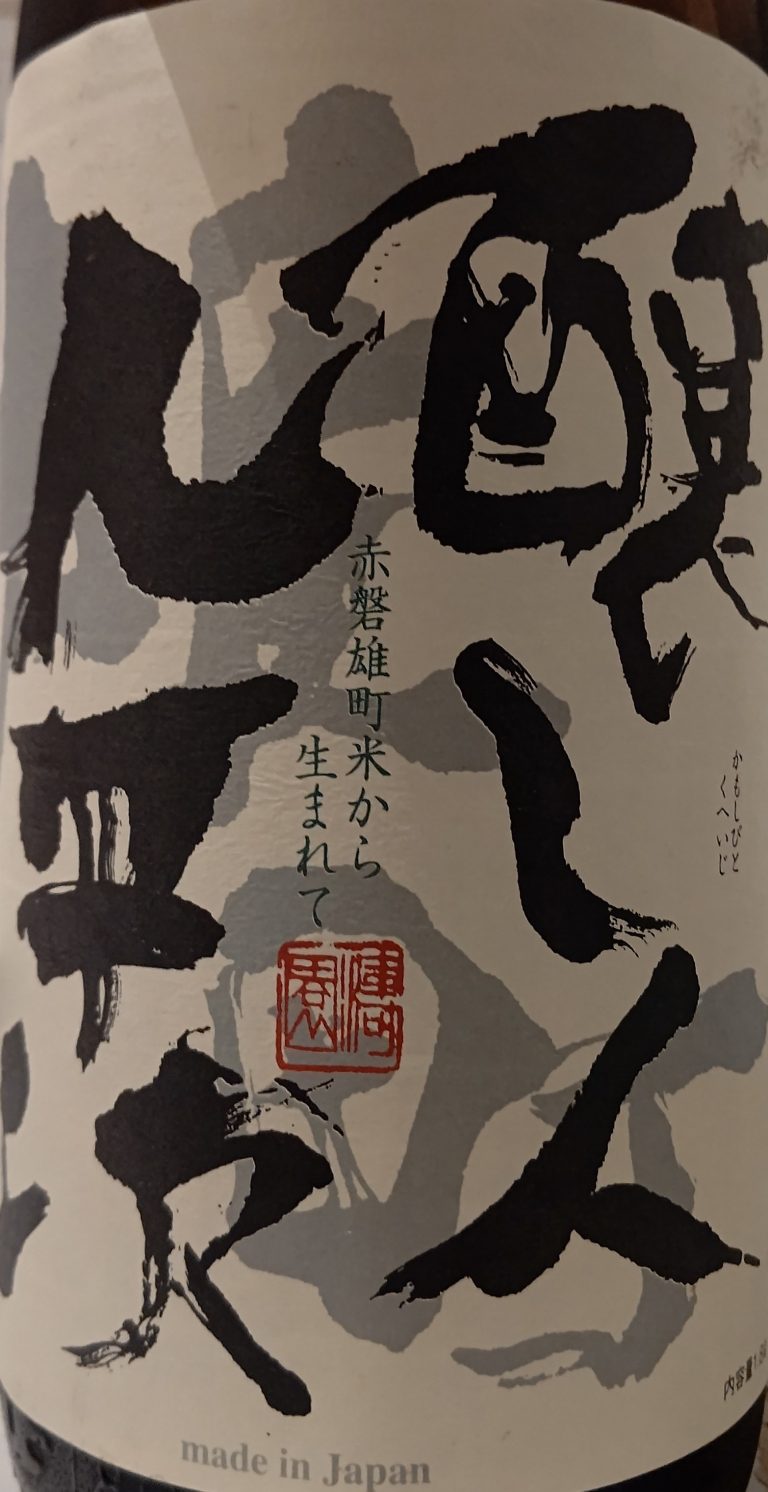 醸し人
九平次
かもしびと
くへいじ
赤磐雄町米から
生まれて
内容量1.8
made in Japan